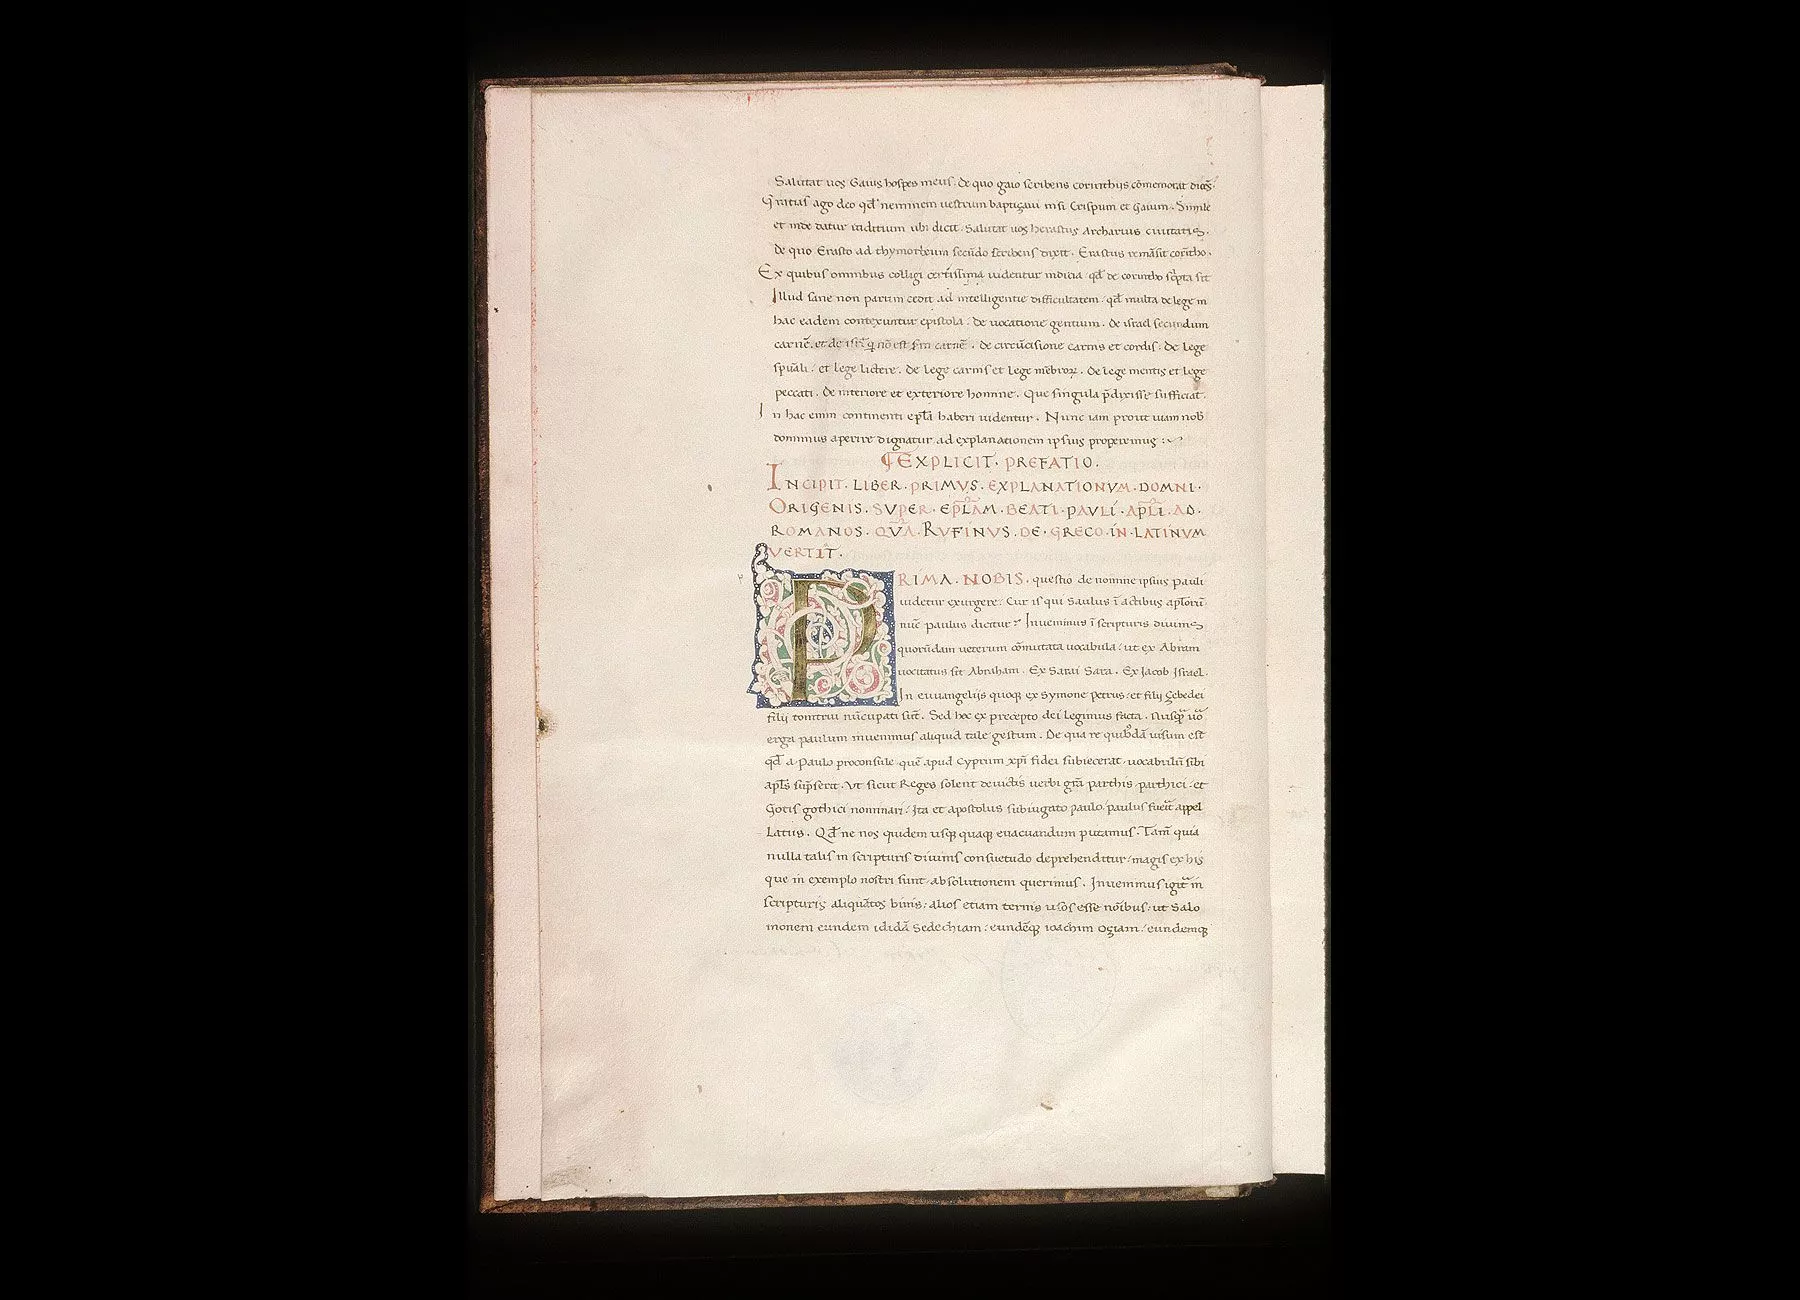 Salutat uos Gaius hospes meus. de quo gaio scribens corinthiis cōmemorat dicēs.
Gratias ago deo qđ neminem uestrum baptizaui nisi Crispum et Gaium. Simile
et inde datur inditium ubi dicit. Salutat uos herastus Archarius ciuitatis.
de quo Erasto ad thymotheum secūdo scribens dixit. Erastus remāsit corītho.
Ex quibus omnibus colligi certissima uidentur indicia qđ de corintho scpta sit
Illud sane non parum cedit ad intelligentie difficultatem qđ multa de lege in
hac eadem contexuntur epistola. de uocatione gentium. de israel secundum
carnē. et de isrl q nō est scdm carnē. de circūcisione carnis et cordis. de lege
spūali. et lege littere. de lege carnis et lege mēbroꝝ. de lege mentis et lege
peccati. de interiore et exteriore homine. Que singula p̄dixisse sufficiat.
In hac enim continenti epl̄a haberi uidentur. Nunc iam prout uiam nob
dominus aperire dignatur ad explanationem ipsius properemus :~
¶EXPLICIT. PREFATIO.
INCIPIT. LIBER. PRIMVS. EXPLANATIONVM. DOMNI.
ORIGENIS. SVPER. EPL̄AM. BEATI. PAVLI. APL̄I. AD.
ROMANOS. QVĀ. RVFINVS. DE. GRECO. IN. LATINVM
VERTIT.
PRIMA. NOBIS. questio de nomine ipsius Pauli
uidetur exurgere. Cur is qui Saulus ī actibus apl̄orū
nūc Paulus dicitur? Inuenimus ī scripturis diuinis
quorūdam ueterum cōmutata uocabula. ut ex Abram
uocitatus sit Abraham. Ex Sarai Sara. Ex Jacob Israel.
In euuangelijs quoqꝫ ex symone petrus. et filij Zebedei
filij tonitrui nūcupati sūt. Sed hec ex precepto dei legimus facta. Nusqꝫ uo
erga paulum inuenimus aliquid tale gestum. De qua re quibdā uisum est
qđ a Paulo proconsule quē apud Cyprum xp̄i fidei subiecerat uocabulū sibi
apl̄s sūpserit. Vt sicut Reges solent deuictis uerbi grā parthis parthici. et
Gotis gothici nominari. Ita et apostolus subiugato paulo, paulus fuerit appel
Latus. Qđ ne nos quidem usqꝫ quaqꝫ euacuandum putamus. Tam̄ quia
nulla talis in scripturis diuinis consuetudo deprehenditur, magis ex his
que in exemplo nostri sunt absolutionem querimus. Inuenimus igit in
scripturis aliquātos binis: alios etiam ternis usos esse noībus. ut Salo
monem eundem ididā Sedechiam: eundēqꝫ ioachim Oziam. eundemqꝫ